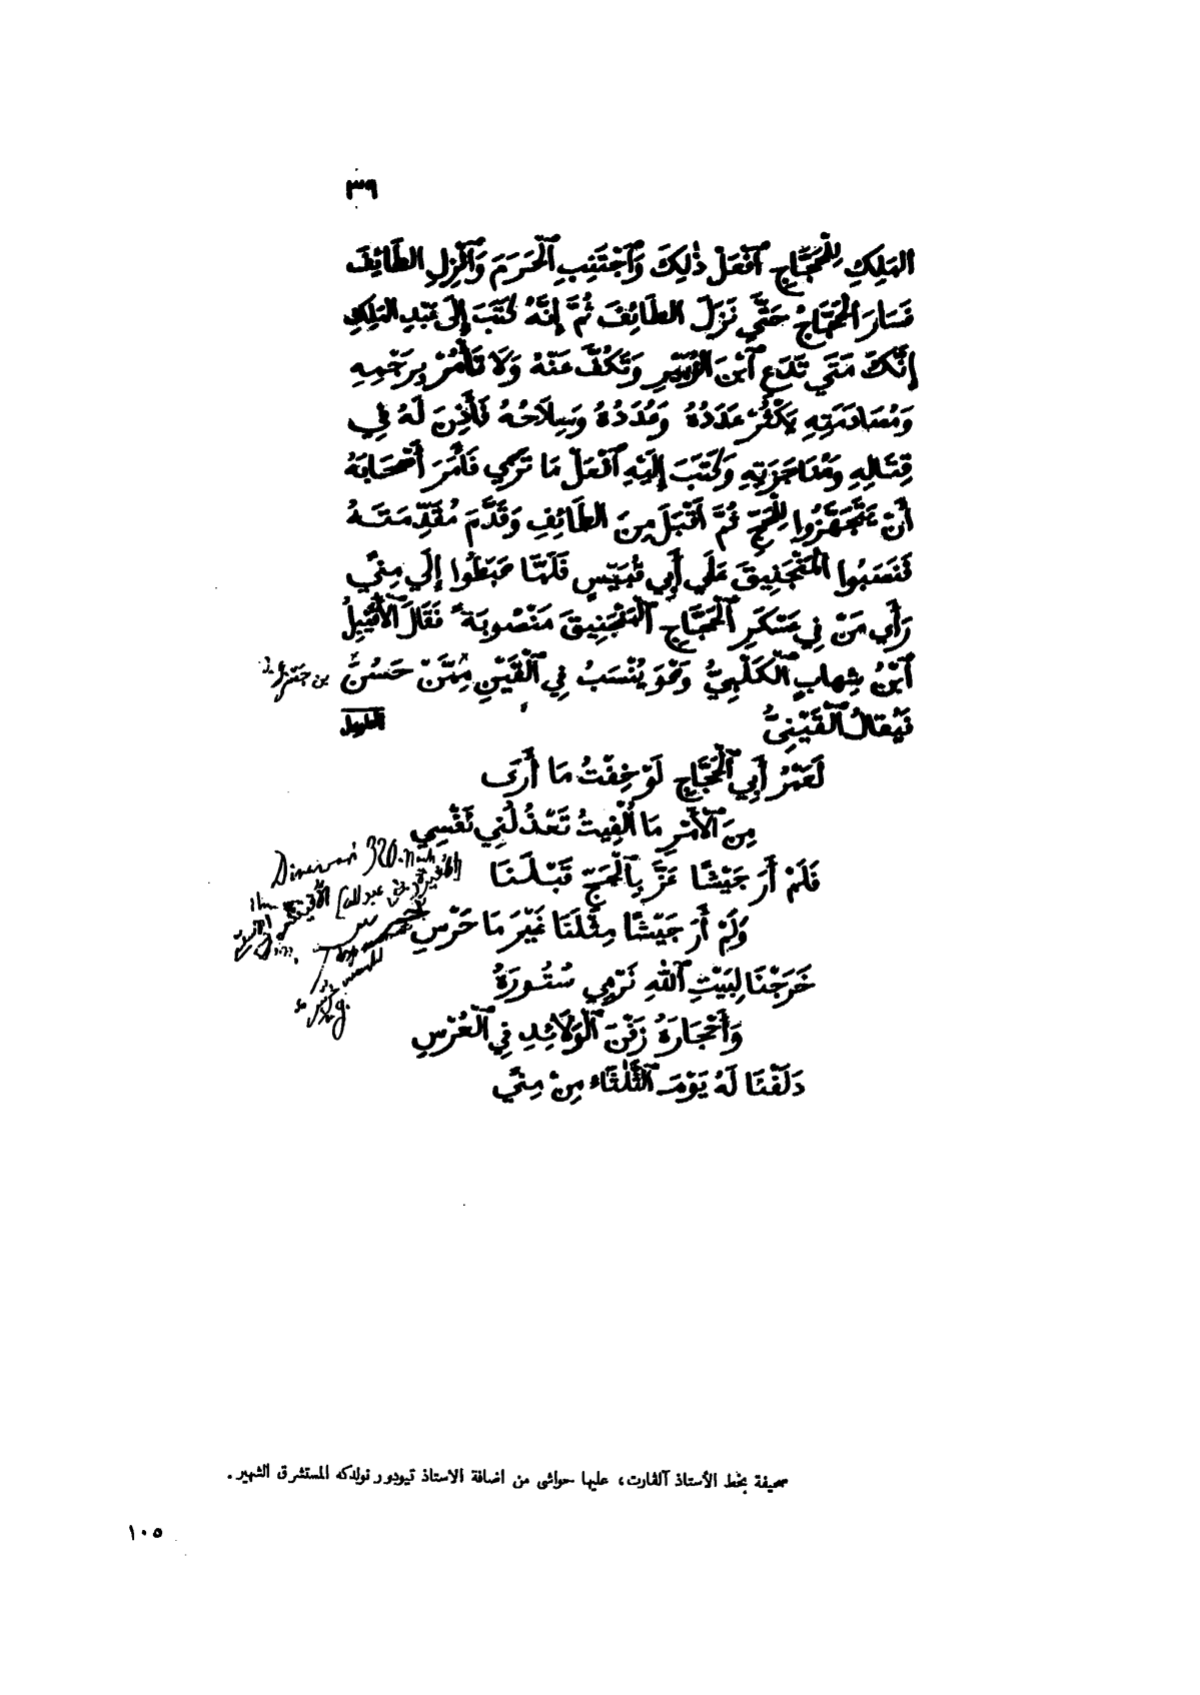 ٣٩
المَلِكِ لِلْحَجَّاجِ ٱفْعَلْ ذٰلِكَ وَٱجْتَنِبِ ٱلْحَرَمَ وَٱنْزِلِ الطَّائِفَ
فَسَارَ ٱلْحَجَّاجُ حَتَّى نَزَلَ الطَّائِفَ ثُمَّ إِنَّهُ كَتَبَ إِلَى عَبْدِ المَلِكِ
إِنَّكَ مَتَى تَدَعِ ٱبْنَ الزُّبَيْرِ وَتَكُفَّ عَنْهُ وَلَا تَأْمُرْ بِرَجْمِهِ
وَمُصَادَمَتِهِ يَكْثُرْ عَدَدُهُ وَعُدَدُهُ وَسِلَاحُهُ فَأْذَنْ لَهُ فِي
قِتَالِهِ وَمُنَاجَزَتِهِ وَكَتَبَ إِلَيْهِ ٱفْعَلْ مَا تَرَى فَأَمَرَ أَصْحَابَهُ
أَنْ يَتَجَهَّزُوا لِلْحَجِّ ثُمَّ أَقْبَلَ مِنَ الطَّائِفِ وَقَدَّمَ مُقَدِّمَتَهُ
فَنَصَبُوا ٱلْمَنْجَنِيقَ عَلَى أَبِي قُبَيْسٍ فَلَمَّا هَبَطُوا إِلَى مِنًى
رَأَى مَنْ فِي عَسْكَرِ ٱلْحَجَّاجِ ٱلْمَنْجَنِيقَ مَنْصُوبَةً فَقَالَ ٱلْأُقَيْبِلُ
ٱبْنُ شِهَابٍ ٱلْكَلْبِيُّ وَهُوَ يُنْسَبُ فِي ٱلْقَيْنِ مِمَّنْ حَسُنَ
فَيُقَالُ ٱلْقَيْنِيُّ الطويل
لَعَمْرُ أَبِي ٱلْحَجَّاجِ لَوْ خِفْتُ مَا أَرَى
مِنَ ٱلْأَمْرِ مَا أُلْفِيتُ تَعْذُلُنِي نَفْسِي
Dinawari 320.
فَلَمْ أَرَ جَيْشًا عَزَّ بِٱلْحَجِّ قَبْلَنَا
وَلَمْ أَرَ جَيْشًا مِثْلَنَا غَيْرَ مَا خَرْسِ
خَرَجْنَا لِبَيْتِ ٱللّٰهِ نَرْمِي سُتُورَهُ
وَأَحْجَارَهُ زَفْنَ ٱلْوَلَائِدِ فِي ٱلْعُرْسِ
دَلَفْنَا لَهُ يَوْمَ ٱلثَّلَثَاءِ مِنْ مِنًى
صحيفة بخط الأستاذ آلفارت، عليها حواشى من اضافة الاستاذ تيودور نولدكه المستشرق الشهير.
١٠٥